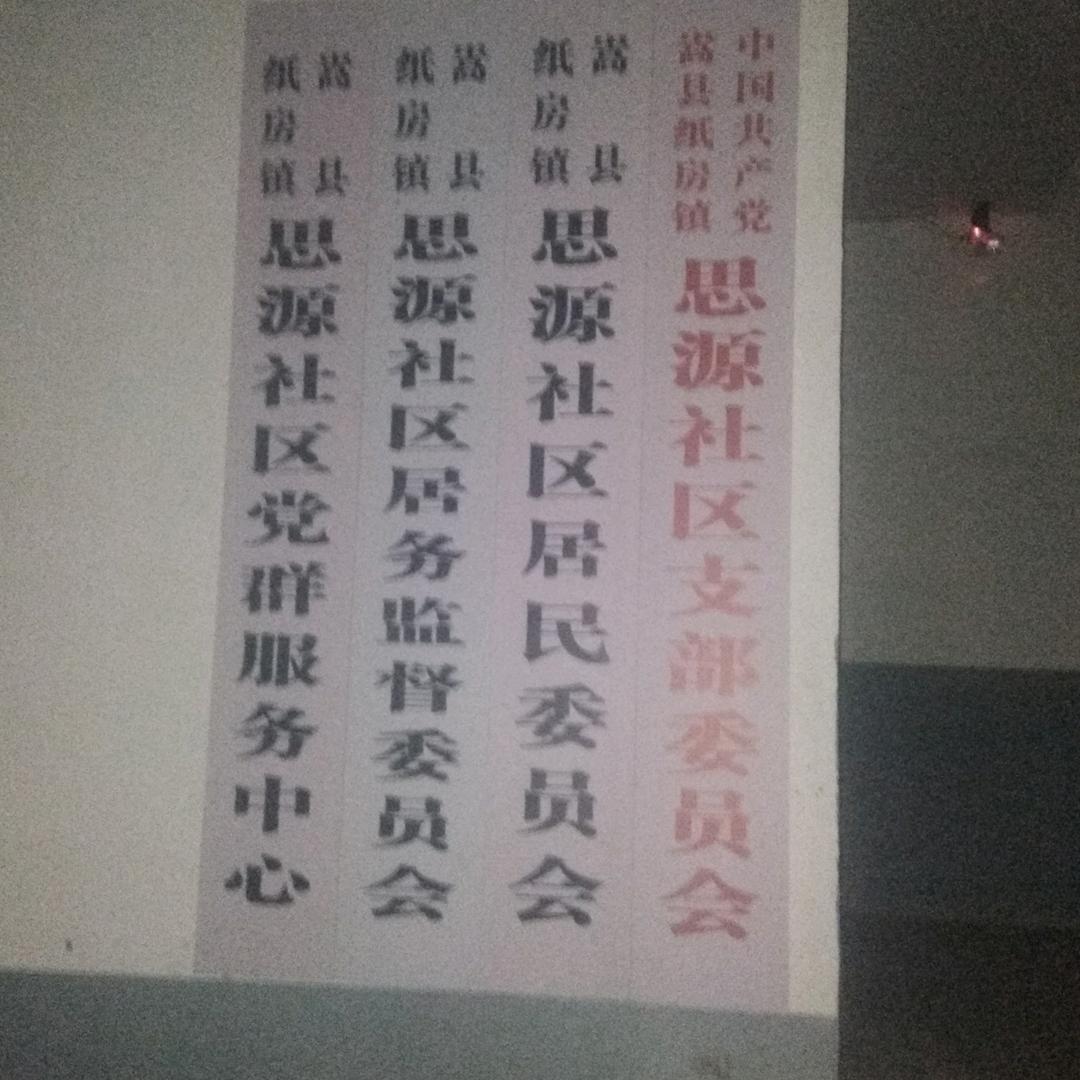 中国共产党
嵩县纸房镇
思源社区支部委员会
嵩县
纸房镇
思源社区居民委员会
嵩县
纸房镇
思源社区居务监督委员会
嵩县
纸房镇
思源社区党群服务中心